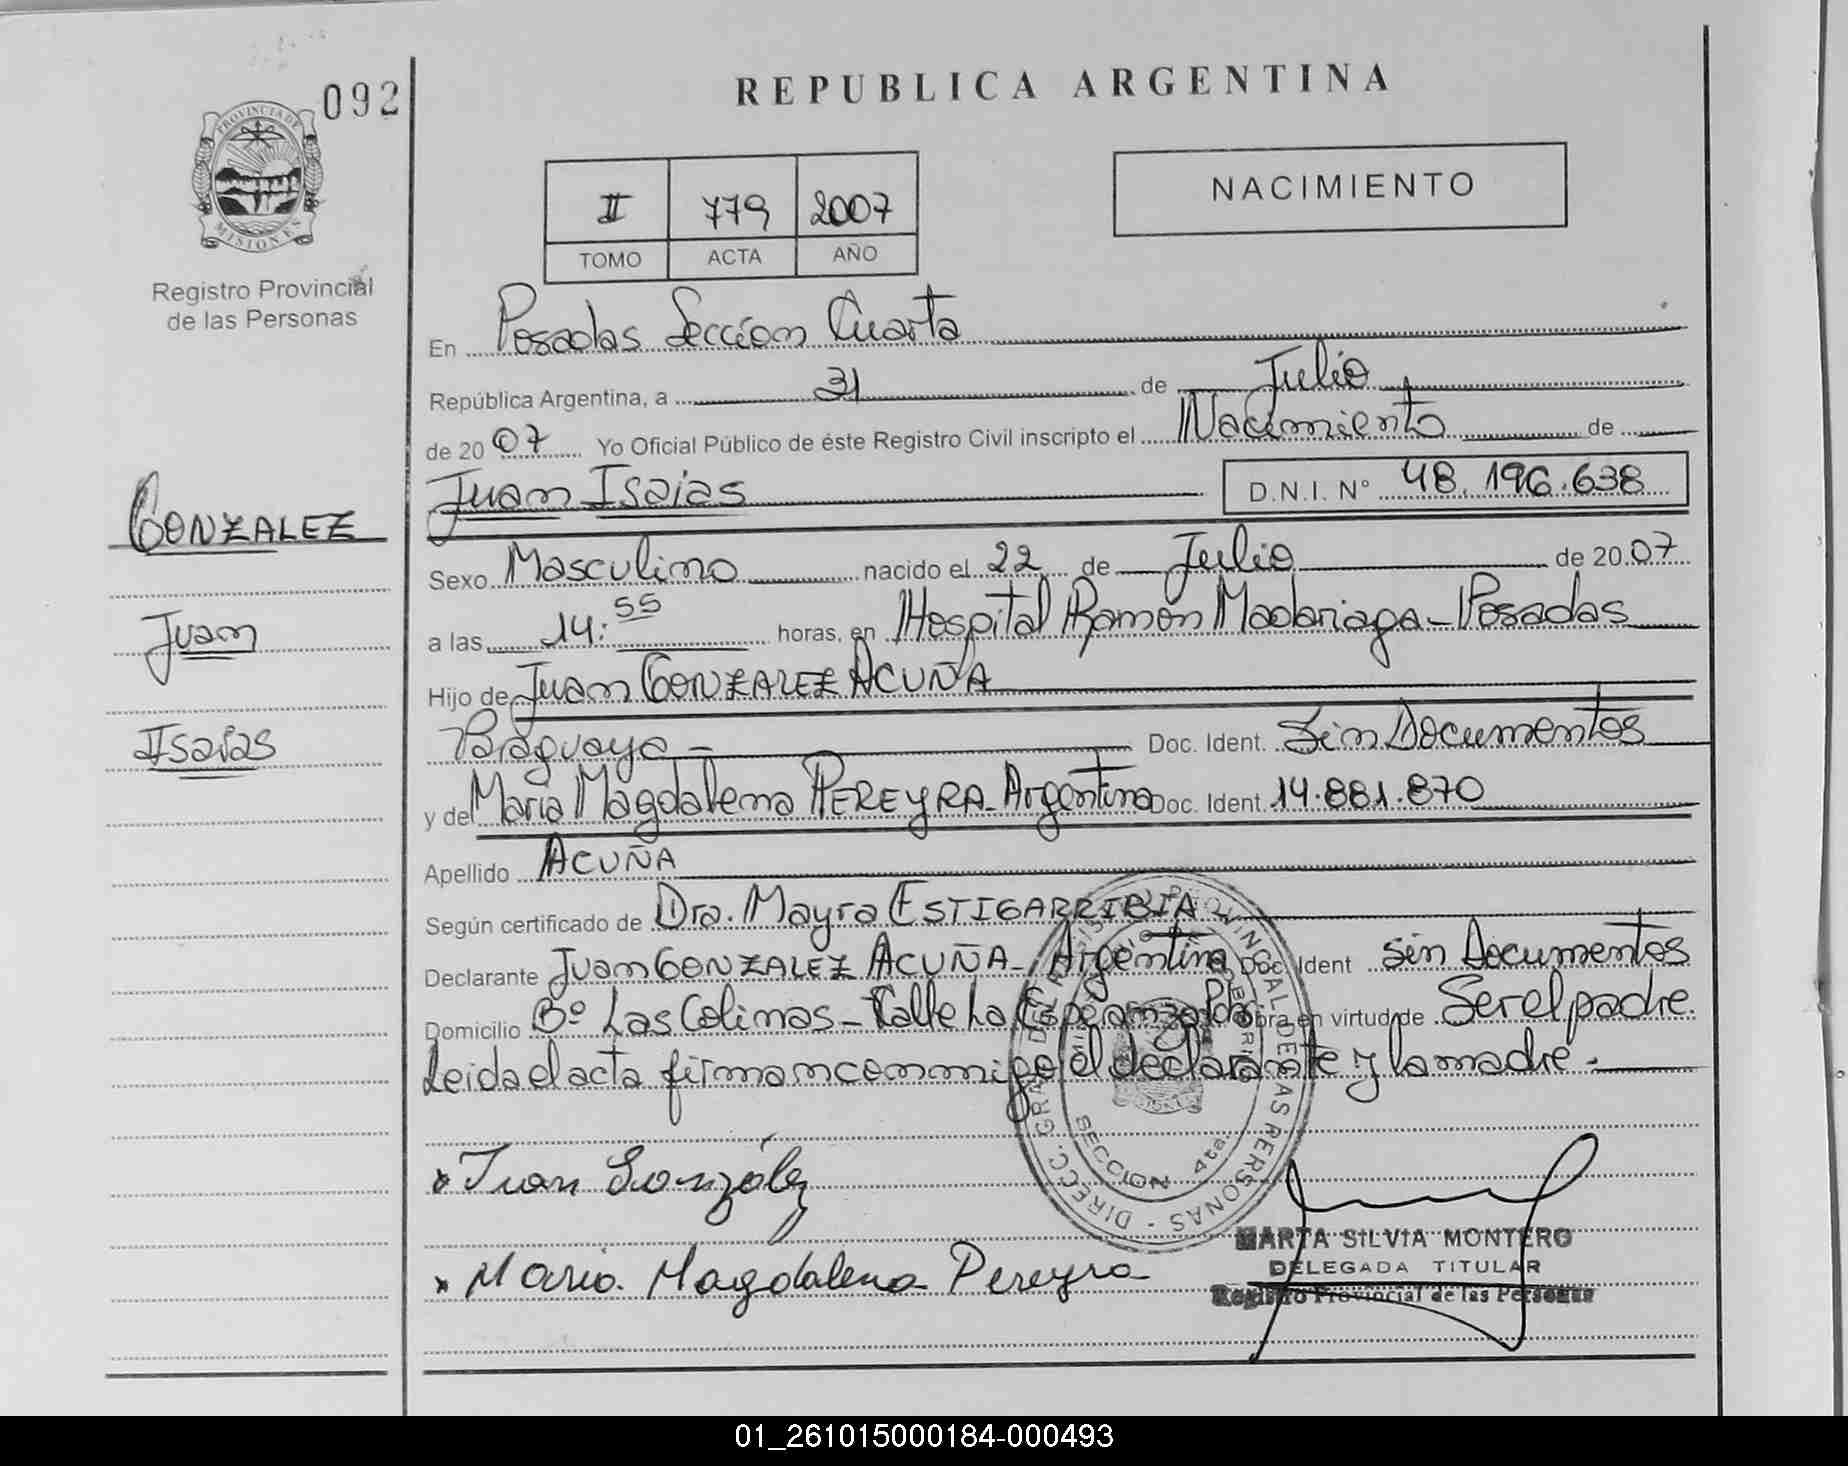 092
PROVINCIA DE
MISIONES
Registro Provincial
de las Personas
GONZALEZ
Juan
Isaias
REPUBLICA ARGENTINA
II 779 2007
TOMO ACTA AÑO
NACIMIENTO
En Posadas Seccion Cuarta
República Argentina, a 31 de Julio
de 2007 Yo Oficial Público de éste Registro Civil inscripto el Nacimiento de
Juan Isaias D.N.I. Nº 48.196.638
Sexo Masculino nacido el 22 de Julio de 2007
a las 14:55 horas, en Hospital Ramón Madariaga - Posadas
Hijo de Juan GONZALEZ ACUÑA
Paraguaya - Doc. Ident. Sin Documentos
y de María Magdalena PEREYRA - Argentina Doc. Ident. 14.881.870
Apellido ACUÑA
Según certificado de Dra. Mayra ESTIGARRIBIA
Declarante Juan GONZALEZ ACUÑA - Argentina Doc. Ident Sin Documentos
Domicilio Bº Las Colinas - Calle La Esperanza Pdas Obra en virtud de Ser el padre.
Leida el acta firman conmigo el declarante y la madre.-
Juan González
Maria Magdalena Pereyra
DIRECC. GRAL. DEL REGISTRO PROVINCIAL DE LAS PERSONAS
SECCION 4ta.
MARTA SILVIA MONTERO
DELEGADA TITULAR
Registro Provincial de las Personas
01_261015000184-000493